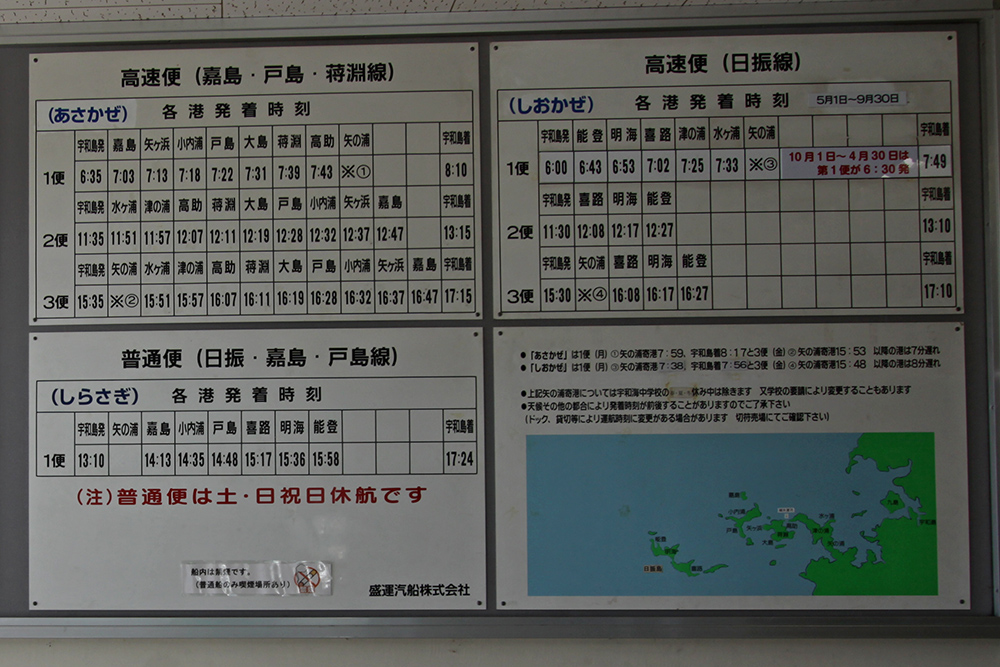 高速便（嘉島・戸島・蒋淵線）
（あさかぜ） 各港発着時刻
宇和島発 嘉島 矢ヶ浜 小内浦 戸島 大島 蒋淵 高助 矢の浦 宇和島着
1便 6:35 7:03 7:13 7:18 7:22 7:31 7:39 7:43 ※① 8:10
宇和島発 水ヶ浦 津の浦 高助 蒋淵 大島 戸島 小内浦 矢ヶ浜 嘉島 宇和島着
2便 11:35 11:51 11:57 12:07 12:11 12:19 12:28 12:32 12:37 12:47 13:15
宇和島発 矢の浦 水ヶ浦 津の浦 高助 蒋淵 大島 戸島 小内浦 矢ヶ浜 嘉島 宇和島着
3便 15:35 ※② 15:51 15:57 16:07 16:11 16:19 16:28 16:32 16:37 16:47 17:15
高速便（日振線）
（しおかぜ） 各港発着時刻 5月1日～9月30日
宇和島発 能登 明海 喜路 津の浦 水ヶ浦 矢の浦 宇和島着
1便 6:00 6:43 6:53 7:02 7:25 7:33 ※③ 10月1日～4月30日は 7:49
第1便が6:30発
宇和島発 喜路 明海 能登 宇和島着
2便 11:30 12:08 12:17 12:27 13:10
宇和島発 矢の浦 喜路 明海 能登 宇和島着
3便 15:30 ※④ 16:08 16:17 16:27 17:10
普通便（日振・嘉島・戸島線）
（しらさぎ） 各港発着時刻
宇和島発 矢の浦 嘉島 小内浦 戸島 喜路 明海 能登 宇和島着
1便 13:10 14:13 14:35 14:48 15:17 15:36 15:58 17:24
（注）普通便は土・日祝日休航です
船内は禁煙です。
（普通船のみ喫煙場所あり）
盛運汽船株式会社
●「あさかぜ」は1便（月）①矢の浦寄港7:59、宇和島着8:17と3便（金）②矢の浦寄港15:53 以降の港は7分遅れ
●「しおかぜ」は1便（月）③矢の浦寄港7:38、宇和島着7:56と3便（金）④矢の浦寄港15:48 以降の港は8分遅れ
●上記矢の浦寄港については宇和海中学校の休み中は除きます 又学校の要願により変更することもあります
●天候その他の都合により発着時刻が前後することがありますのでご了承下さい
（ドック、貸切等により運航時刻に変更がある場合があります 切符売場にてご確認下さい）
嘉島
小内浦
戸島
矢ヶ浜
大島
高助
蒋淵
水ヶ浦
津の浦
矢の浦
九島
宇和島
能登
明海
日振島
喜路